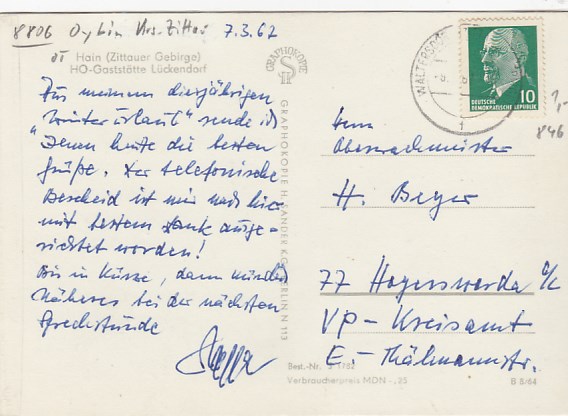 8806 Oybin Krs. Zittau 7.3.62
OT Hain (Zittauer Gebirge)
HO-Gaststätte Lückendorf
Aus meinem diesjährigen
"Winterurlaub" sende ich
Ihnen heute die besten
Grüße. Der telefonische
Bescheid ist mir nach hier
mit bestem Dank ausge-
richtet worden!
Bis in Kürze, dann mündlich
Näheres bei der nächsten
Sprechstunde
GRAPHOKOPIE
GRAPHOKOPIE H. SANDER KG. BERLIN N 113
WALTERSDORF
10
DEUTSCHE
DEMOKRATISCHE REPUBLIK
1,-
846
Herrn
Oberwachmeister
H. Beyer
77 Hoyerswerda O/L
VP-Kreisamt
E.-Thälmannstr.
Best.-Nr. S 1782
Verbraucherpreis MDN -,25
B 8/64